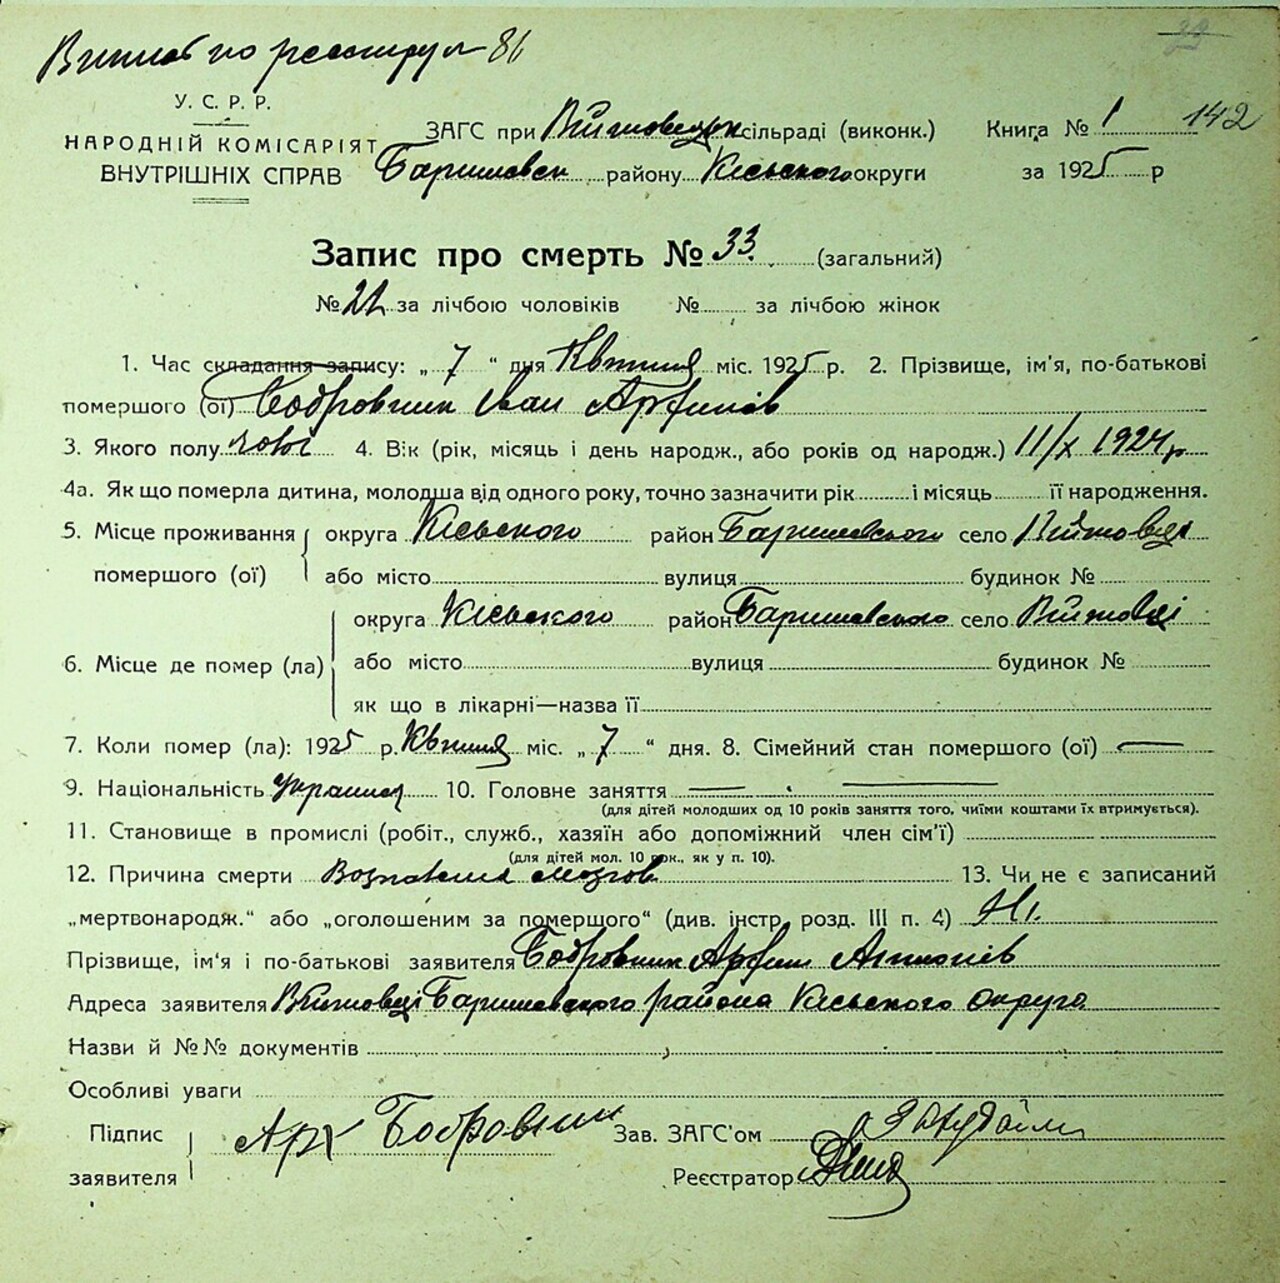 по реєстру 86
У. С. Р. Р.
НАРОДНІЙ КОМІСАРІЯТ
ВНУТРІШНІХ СПРАВ
ЗАГС при сільраді (виконк.) Книга № 1 142
Баришевск району Київського округи за 1925 р
Запис про смерть № 33. (загальний)
№ 22 за лічбою чоловіків № за лічбою жінок
1. Час складання запису: „ 7 “ дня Квітня міс. 1925 р. 2. Прізвище, ім'я, по-батькові
помершого (ої) Бобровник Іван Архипів
3. Якого полу чолов 4. Вік (рік, місяць і день народж., або років од народж.) 11/X 1924 р.
4а. Як що померла дитина, молодша від одного року, точно зазначити рік і місяць її народження.
5. Місце проживання помершого (ої) округа Київського район Баришевського село Війтовці
або місто вулиця будинок №
6. Місце де помер (ла) округа Київського район Баришевського село Війтовці
або місто вулиця будинок №
як що в лікарні—назва її
7. Коли помер (ла): 1925 р. Квітня міс. „ 7 “ дня. 8. Сімейний стан помершого (ої) —
9. Національність Украинец 10. Головне заняття —
(для дітей молодших од 10 років заняття того, чиїми коштами їх втримується).
11. Становище в промислі (робіт., служб., хазяїн або допоміжний член сім'ї)
(для дітей мол. 10 рок., як у п. 10).
12. Причина смерти мозгов 13. Чи не є записаний
„мертвонародж.“ або „оголошеним за помершого“ (див. інстр. розд. III п. 4) Ні.
Прізвище, ім'я і по-батькові заявителя Бобровник Архип Антонів
Адреса заявителя Війтовці Баришевського района Київського округа
Назви й №№ документів
Особливі уваги
Підпис заявителя Арх Бобровник Зав. ЗАГС'ом
Реєстратор